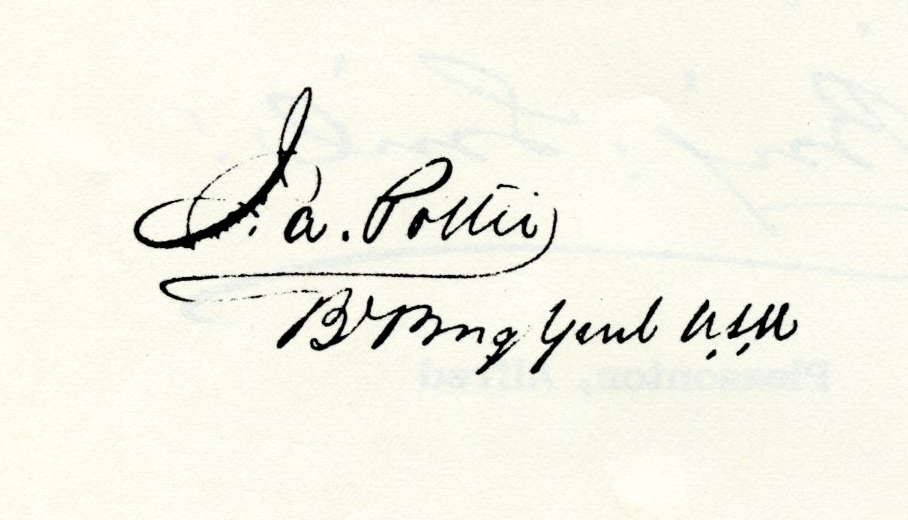 J. A. Potter
Bt Brig Genl U.S.A
Pleasonton, Alfred